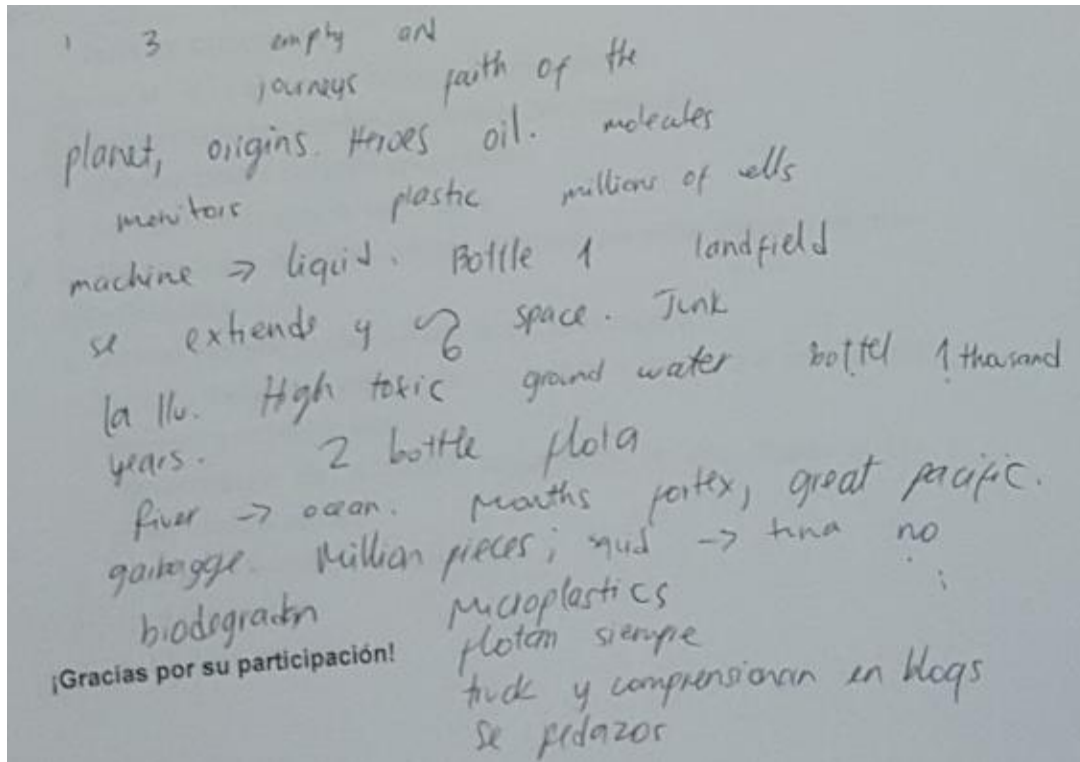 3 empty and
journeys faith of the
planet, origins. Heroes oil. molecules
monitors plastic millions of wells
machine → liquid. Bottle 1 landfield
se extiends y space. Junk
la llu. High toxic ground water bottel 1 thasand
years. 2 bottle flota
River → ocean. mouths fortex, great pacific.
garbagge. Million pieces; squd → tuna no
biodegradtn Microplastics
flotan siempre
¡Gracias por su participación!
truck y comprensionan en bloqs
se pedazos